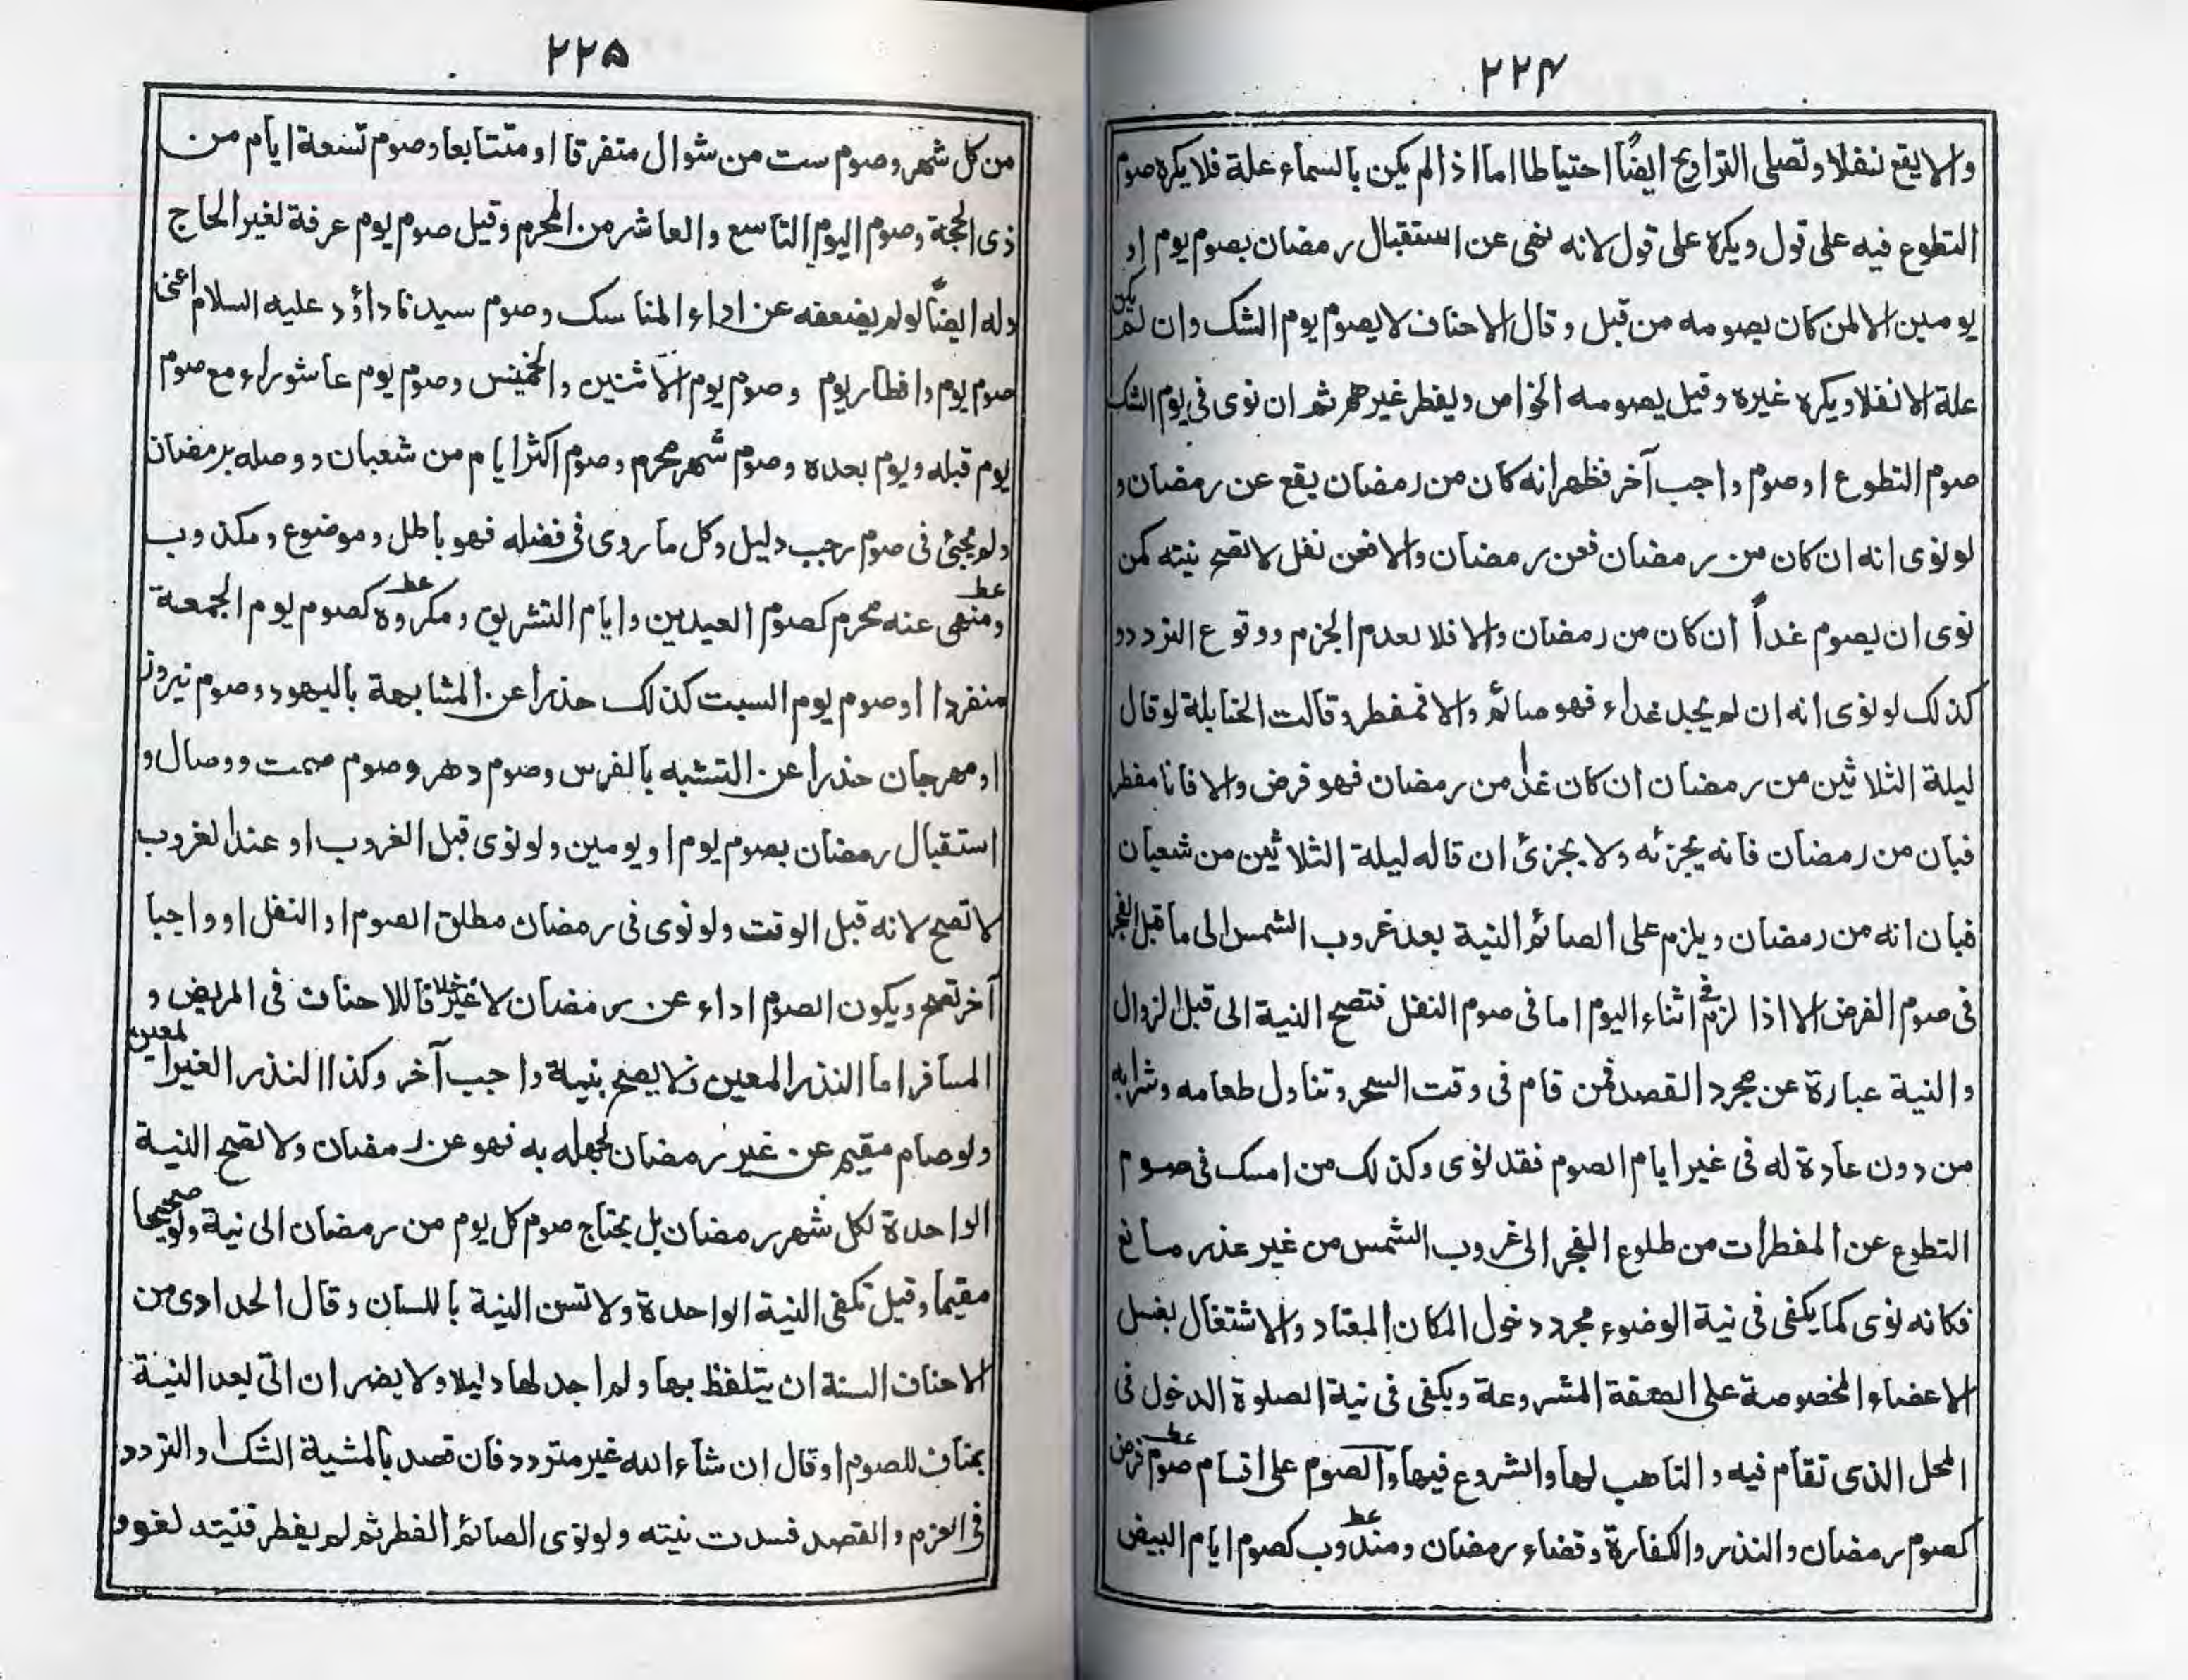 ۲۲۴
والا يقع نفلا وتصلى التراويح ايضًا احتياطا اما اذا لم يكن بالسماء علة فلا يكره صوم
التطوع فيه على قول ويكره على قول لانه نهى عن استقبال رمضان بصوم يوم او
يومين الا لمن كان يصومه من قبل وقال الاحناف لا يصوم يوم الشك وان لم يكن
علة الا نفلا ويكره غيره وقيل يصومه الخواص ويفطر غيرهم ثم ان نوى فى يوم الشك
صوم التطوع او صوم واجب آخر فظهر انه كان من رمضان يقع عن رمضان و
لو نوى انه ان كان من رمضان فعن رمضان والا فعن نفل لا تصح نيته كمن
نوى ان يصوم غداً ان كان من رمضان والا فلا لعدم الجزم ووقوع التردد و
كذلك لو نوى انه ان لم يجد غداء فهو صائم والا فمفطر وقالت الحنابلة لو قال
ليلة الثلاثين من رمضان ان كان غدا من رمضان فهو فرض والا فانا مفطر
فبان من رمضان فانه يجزئه ولا يجزئ ان قاله ليلة الثلاثين من شعبان
فبان انه من رمضان ويلزم على الصائم النية بعد غروب الشمس الى ما قبل الفجر
فى صوم الفرض الا اذا لزم فى اثناء اليوم اما فى صوم النفل فتصح النية الى قبل الزوال
والنية عبارة عن مجرد القصد فمن قام فى وقت السحر وتناول طعامه وشرابه
من دون عادة له فى غير ايام الصوم فقد نوى وكذلك من امسك فى صوم
التطوع عن المفطرات من طلوع الفجر الى غروب الشمس من غير عذر مانع
فكانه نوى كما يكفى فى نية الوضوء مجرد دخول المكان المعتاد والاشتغال بغسل
الاعضاء المخصوصة على الصفة المشروعة ويكفى فى نية الصلوة الدخول فى
المحل الذى تقام فيه والتاهب لها والشروع فيها والصوم على اقسام صوم فرض
كصوم رمضان والنذر والكفارة وقضاء رمضان ومندوب كصوم ايام البيض
۲۲۵
من كل شهر وصوم ست من شوال متفرقا او متتابعا وصوم تسعة ايام من
ذى الحجة وصوم اليوم التاسع والعاشر من المحرم وقيل صوم يوم عرفة لغير الحاج
وله ايضًا لو لم يضعفه عن اداء المناسك وصوم سيدنا داؤد عليه السلام اعنى
صوم يوم وافطار يوم وصوم يوم الاثنين والخميس وصوم يوم عاشوراء مع صوم
يوم قبله ويوم بعده وصوم شهر محرم وصوم اكثر ايام من شعبان ووصله برمضان
ولم يجئ فى صوم رجب دليل وكل ما روى فى فضله فهو باطل وموضوع ومكذوب
ومنهى عنه محرم كصوم العيدين وايام التشريق ومكروه كصوم يوم الجمعة
منفردا او صوم يوم السبت كذلك حذرا عن المشابهة باليهود وصوم نيروز
او مهرجان حذرا عن التشبه بالفرس وصوم دهر وصوم صمت ووصال و
استقبال رمضان بصوم يوم او يومين ولو نوى قبل الغروب او عند الغروب
لا تصح لانه قبل الوقت ولو نوى فى رمضان مطلق الصوم او النفل او واجبا
آخر تصح ويكون الصوم اداء عن رمضان لا غير خلافا للاحناف فى المريض و
المسافر اما النذر المعين فلا يصح بنية واجب آخر وكذا النذر الغير المعين
ولو صام مقيم عن غير رمضان لجهله به فهو عن رمضان ولا تصح النية
الواحدة لكل شهر رمضان بل يحتاج صوم كل يوم من رمضان الى نية ولو صحيحا
مقيما وقيل تكفى النية الواحدة ولا تسن النية باللسان وقال الحدادى من
الاحناف السنة ان يتلفظ بها ولم اجد لها دليلا ولا يضر ان اتى بعد النية
بمناف للصوم او قال ان شاء الله غير متردد فان قصد بالمشية الشك والتردد
فى العزم والقصد فسدت نيته ولو نوى الصائم الفطر ثم لم يفطر فنيته لغو و